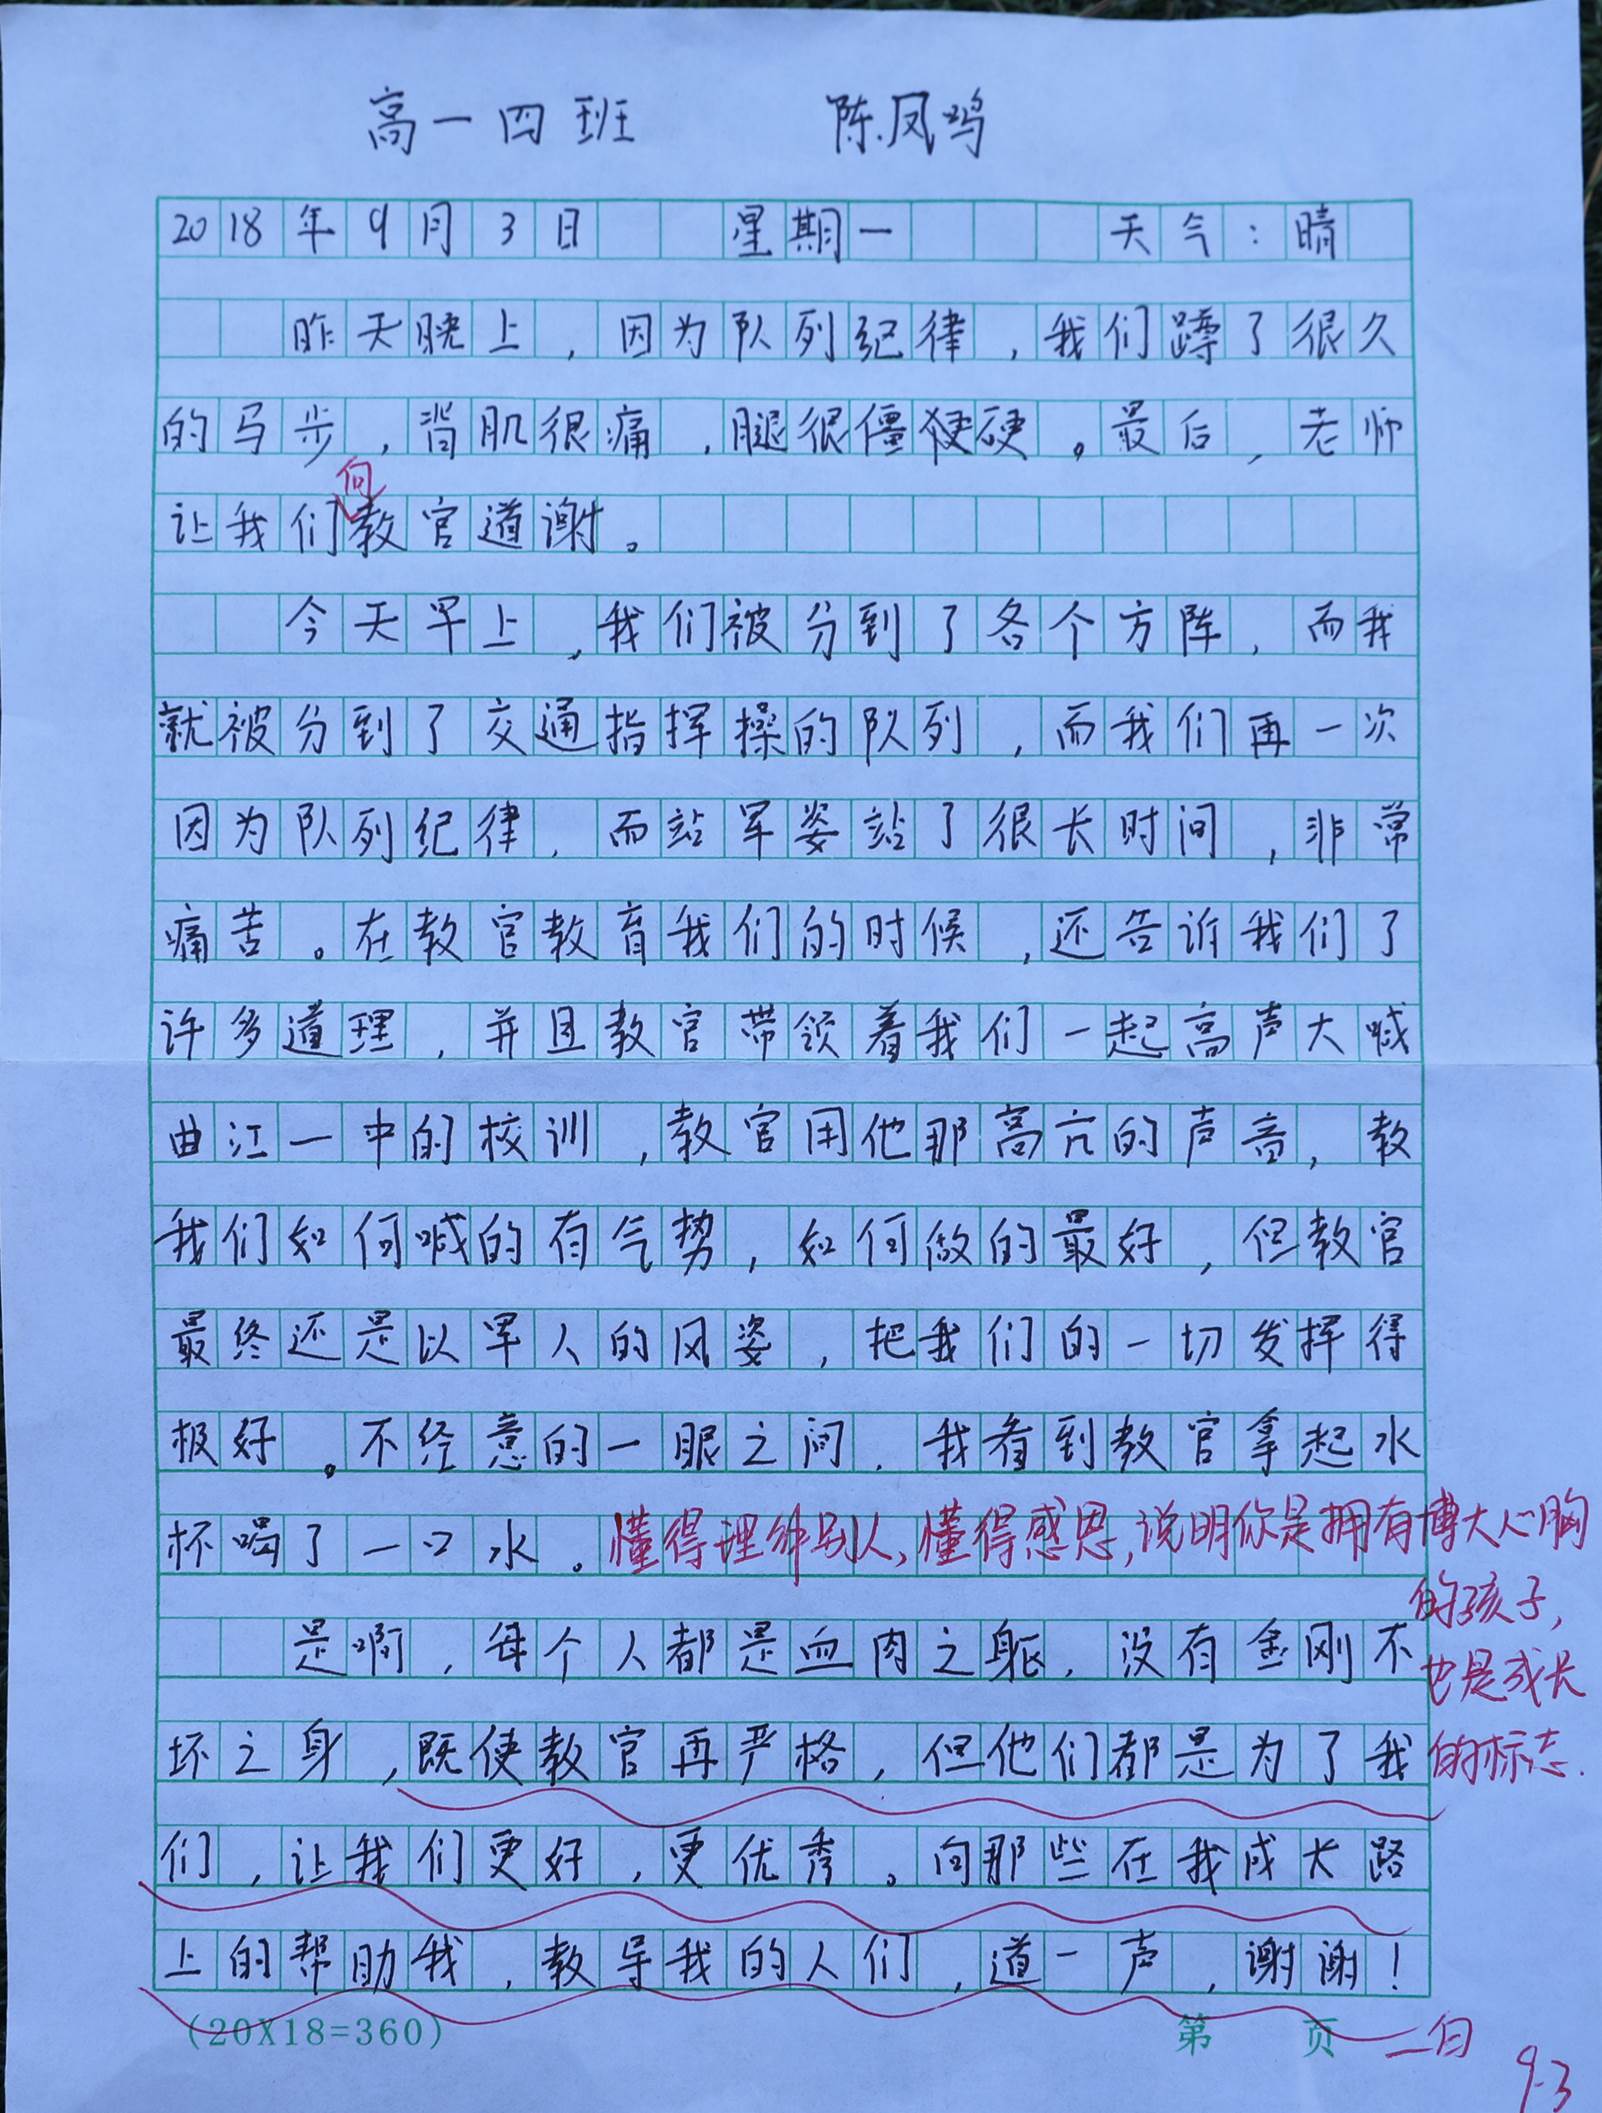 高一四班 陈凤鸣
2018年9月3日 星期一 天气：晴
昨天晚上，因为队列纪律，我们蹲了很久
的马步，背肌很痛，腿很僵硬硬。最后，老师
向
让我们教官道谢。
今天早上，我们被分到了各个方阵，而我
就被分到了交通指挥操的队列，而我们再一次
因为队列纪律，而站军姿站了很长时间，非常
痛苦。在教官教育我们的时候，还告诉我们了
许多道理，并且教官带领着我们一起高声大喊
曲江一中的校训，教官用他那高亢的声音，教
我们如何喊的有气势，如何做的最好，但教官
最终还是以军人的风姿，把我们的一切发挥得
极好。不经意的一眼之间，我看到教官拿起水
杯喝了一口水。懂得理解别人，懂得感恩，说明你是拥有博大心胸
的孩子，
是啊，每个人都是血肉之躯，没有金刚不
也是成长
坏之身，既使教官再严格，但他们都是为了我
的标志.
们，让我们更好，更优秀。向那些在我成长路
上的帮助我，教导我的人们，道一声，谢谢！
(20X18=360) 第 页
9.3